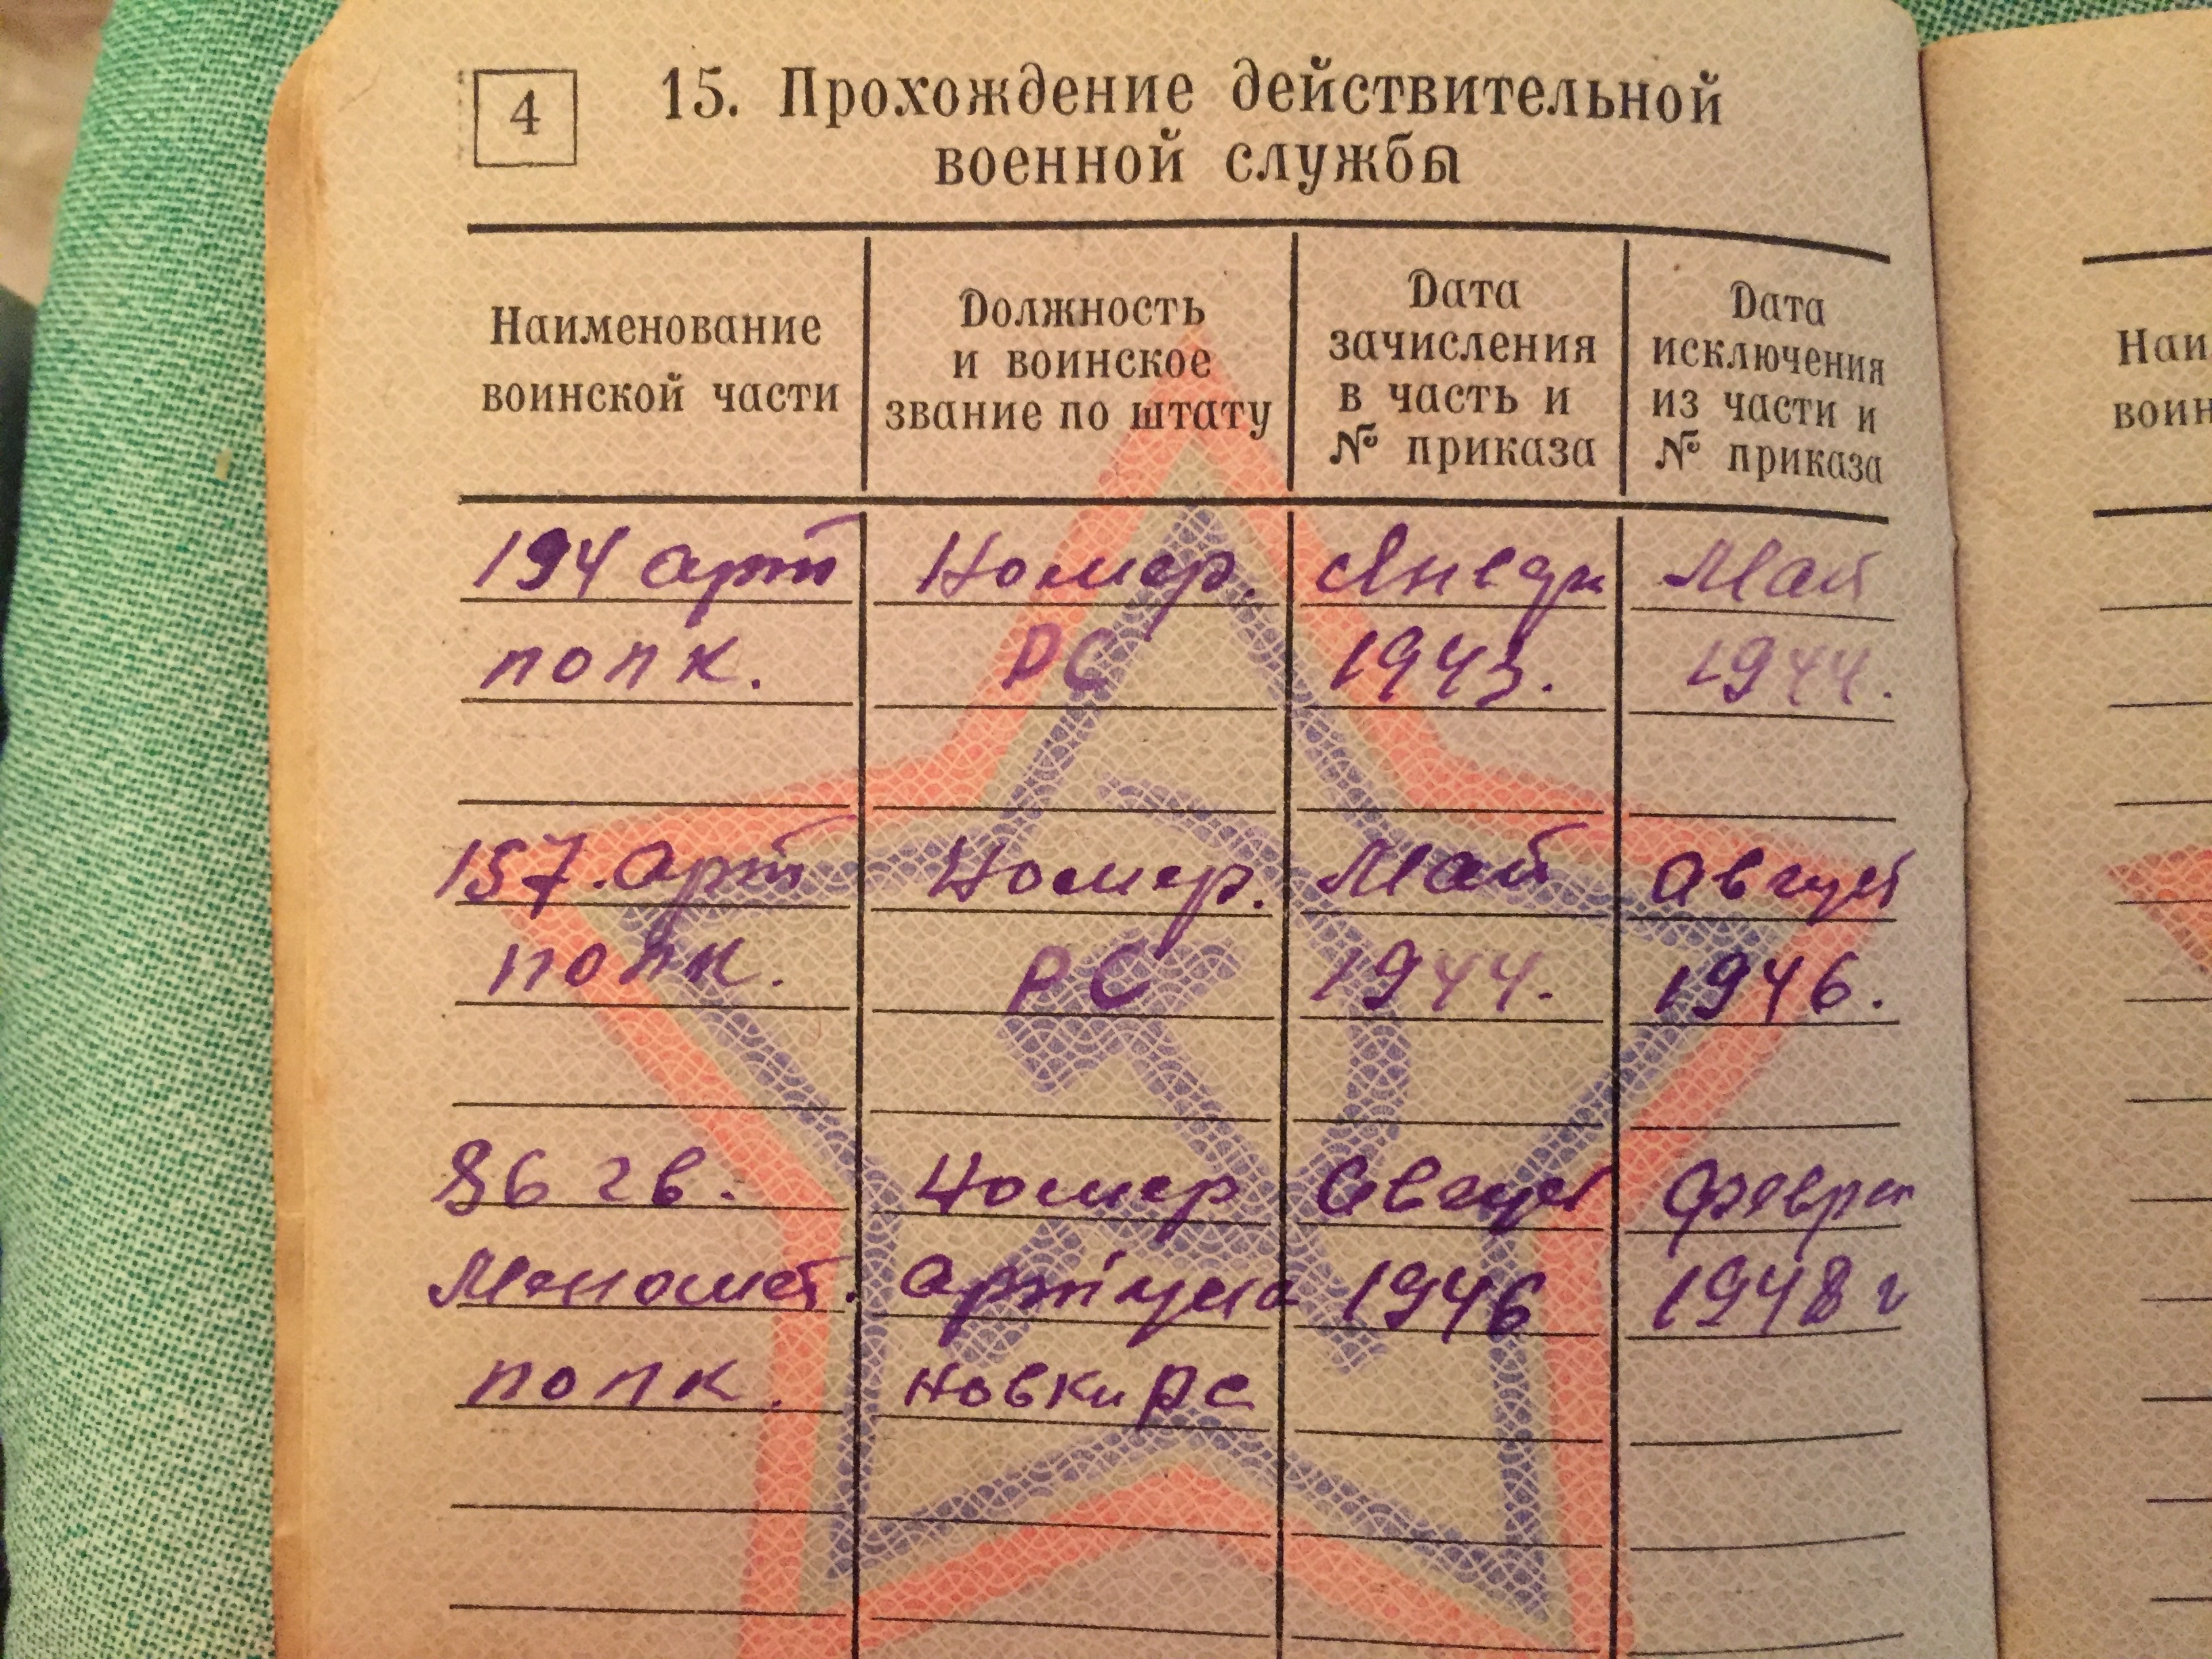 4
15. Прохождение действительной
военной службы
Наименование
воинской части
Должность
и воинское
звание по штату
Дата
зачисления
в часть и
№ приказа
Дата
исключения
из части и
№ приказа
194 арт
полк.
Номер.
РС
Январ
1943.
Май
1944.
157. арт
полк.
Номер.
РС
Май
1944.
Август
1946.
86 гв.
Миномет.
полк.
Номер
артуста
новки РС
Август
1946
Феврал
1948 г
Наи
воин